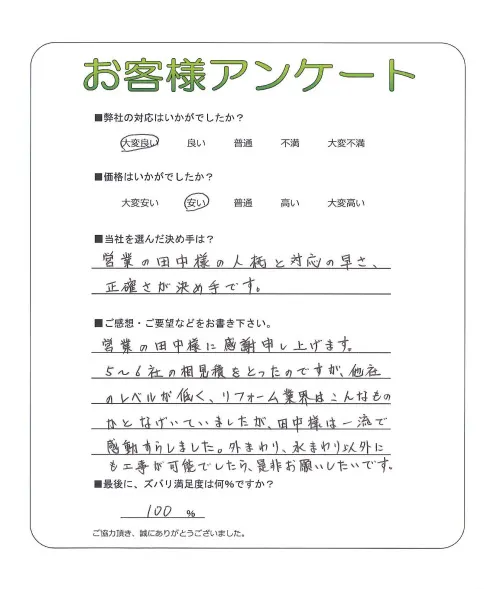 お客様アンケート
■弊社の対応はいかがでしたか？
大変良い 良い 普通 不満 大変不満
■価格はいかがでしたか？
大変安い 安い 普通 高い 大変高い
■当社を選んだ決め手は？
営業の田中様の人柄と対応の早さ、
正確さが決め手です。
■ご感想・ご要望などをお書き下さい。
営業の田中様に感謝申し上げます。
5〜6社の相見積をとったのですが、他社
のレベルが低く、リフォーム業界はこんなもの
かとなげいていましたが、田中様は一流で
感動すらしました。外まわり、水まわり以外に
も工事が可能でしたら、是非お願いしたいです。
■最後に、ズバリ満足度は何%ですか？
100 %
ご協力頂き、誠にありがとうございました。